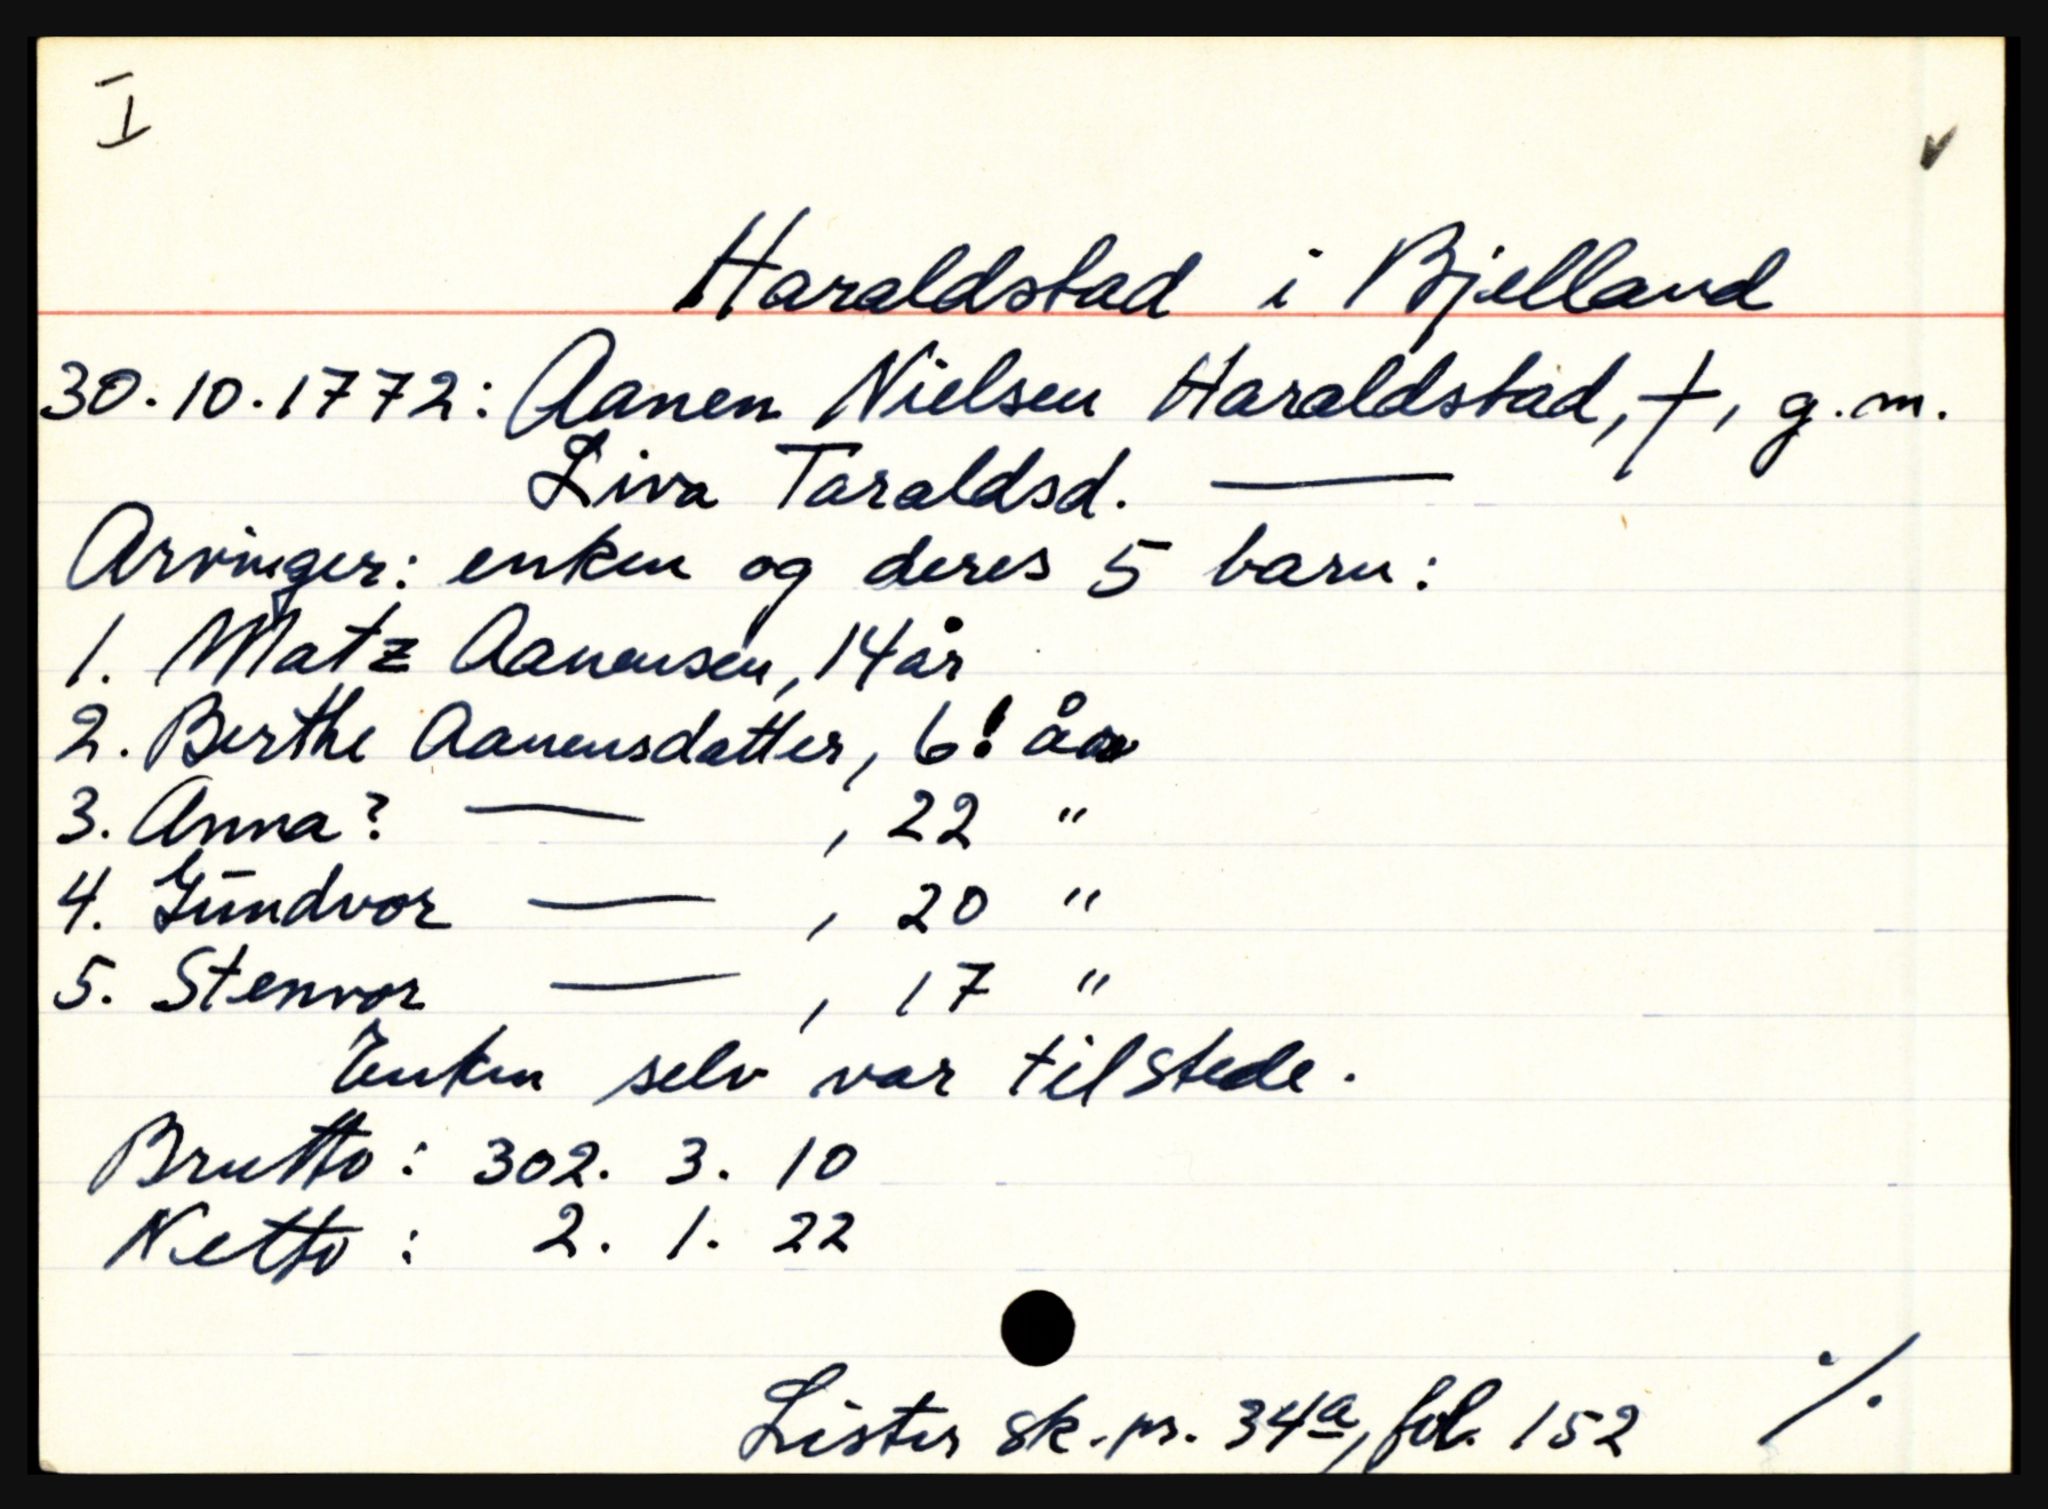 I
Haraldstad i Bjelland
30.10.1772: Aanen Nielsen Haraldstad, †, g.m.
Liva Taraldsd. —
Arvinger: enken og deres 5 barn:
1. Matz Aanensen, 14 år
2. Berthe Aanensdatter, 6! år
3. Anna? — , 22 "
4. Gundvor — , 20 "
5. Stenvor — , 17 "
Enken selv var tilstede.
Brutto: 302. 3. 10
Netto: 2. 1. 22
Lister sk.pr. 34a, fol. 152 ./.